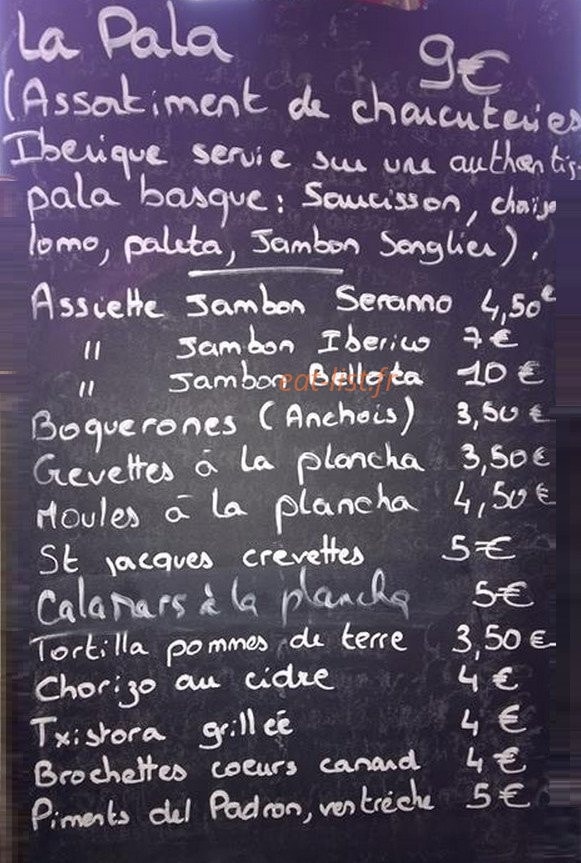 La Pala 9€
(Assortiment de charcuteries
Iberique servie sur une authentiq-
pala basque: Saucisson, chorizo
lomo, paleta, Jambon Sanglier).
Assiette Jambon Serano 4,50€
" Jambon Iberico 7€
" Jambon Bellota 10€
eat-list.fr
Boquerones (Anchois) 3,50€
Crevettes à la plancha 3,50€
Moules à la plancha 4,50€
St jacques crevettes 5€
Calamars à la plancha 5€
Tortilla pommes de terre 3,50€
Chorizo au cidre 4€
Txistora grillée 4€
Brochettes coeurs canard 4€
Piments del Padron, ventrèche 5€